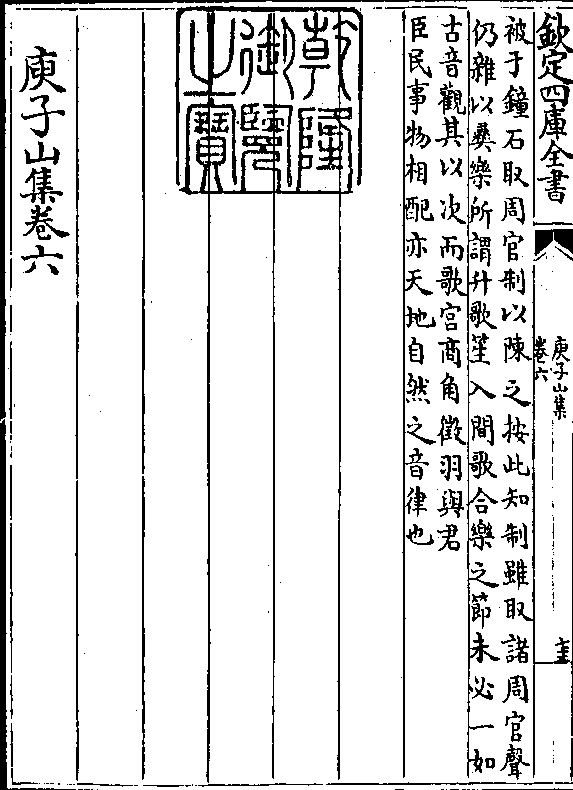 欽定四庫全書
庾子山集
卷六
被于鐘石取周官制以陳之按此知制雖取諸周官聲
仍雜以彝樂所謂升歌笙入間歌合樂之節未必一如
古音觀其以次而歌宮商角徵羽與君
臣民事物相配亦天地自然之音律也
乾隆
御覽
之寶
庾子山集卷六